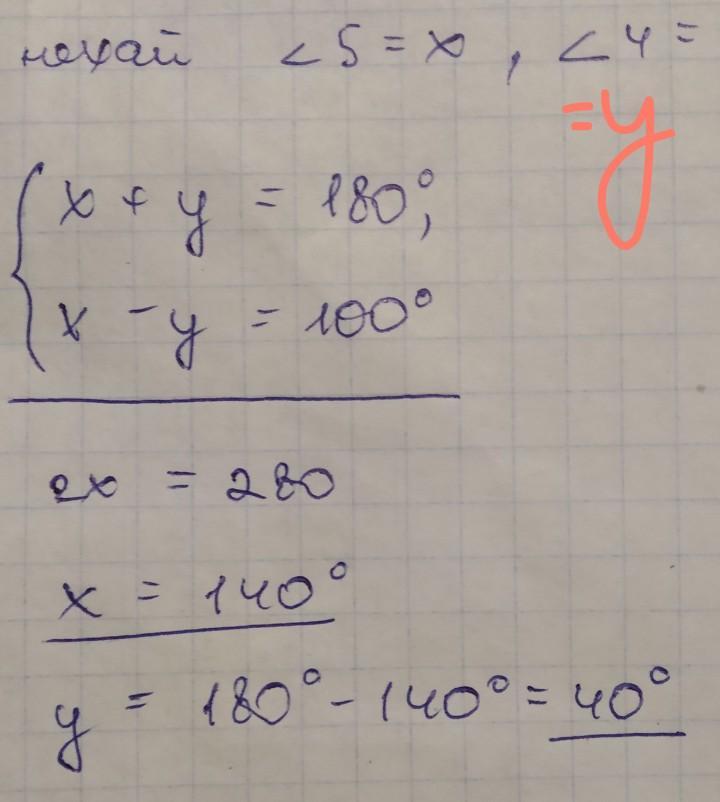 нехай ∠5 = x, ∠4 =
= y
x + y = 180°;
x - y = 100°
2x = 280
x = 140°
y = 180° - 140° = 40°